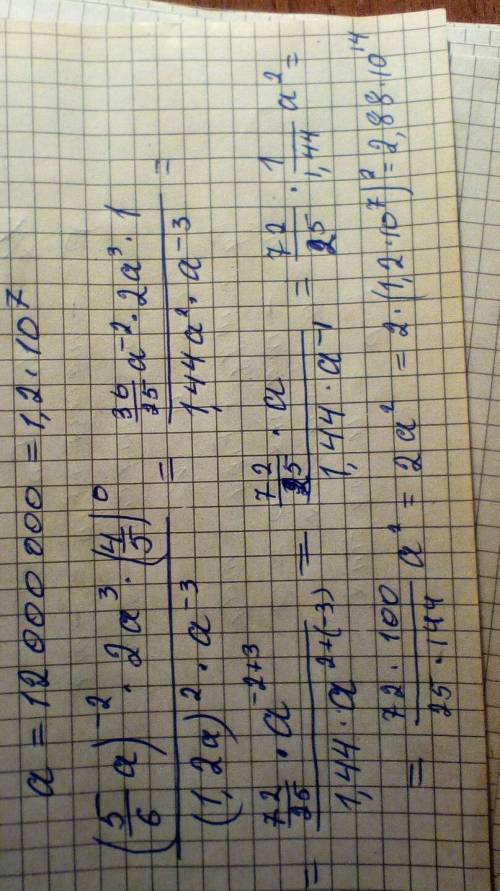 a = 12 000 000 = 1,2 · 10⁷
(5/6 a)⁻² · 2a³ · (4/5)⁰ / (1,2a)² · a⁻³ = 36/25 a⁻² · 2a³ · 1 / 1,44a² · a⁻³ =
= 72/25 · a⁻²⁺³ / 1,44 · a²⁺⁽⁻³⁾ = 72/25 · a / 1,44 · a⁻¹ = 72/25 · 1/1,44 a² =
= 72 · 100 / 25 · 144 a² = 2a² = 2 · (1,2 · 10⁷)² = 2,88 · 10¹⁴